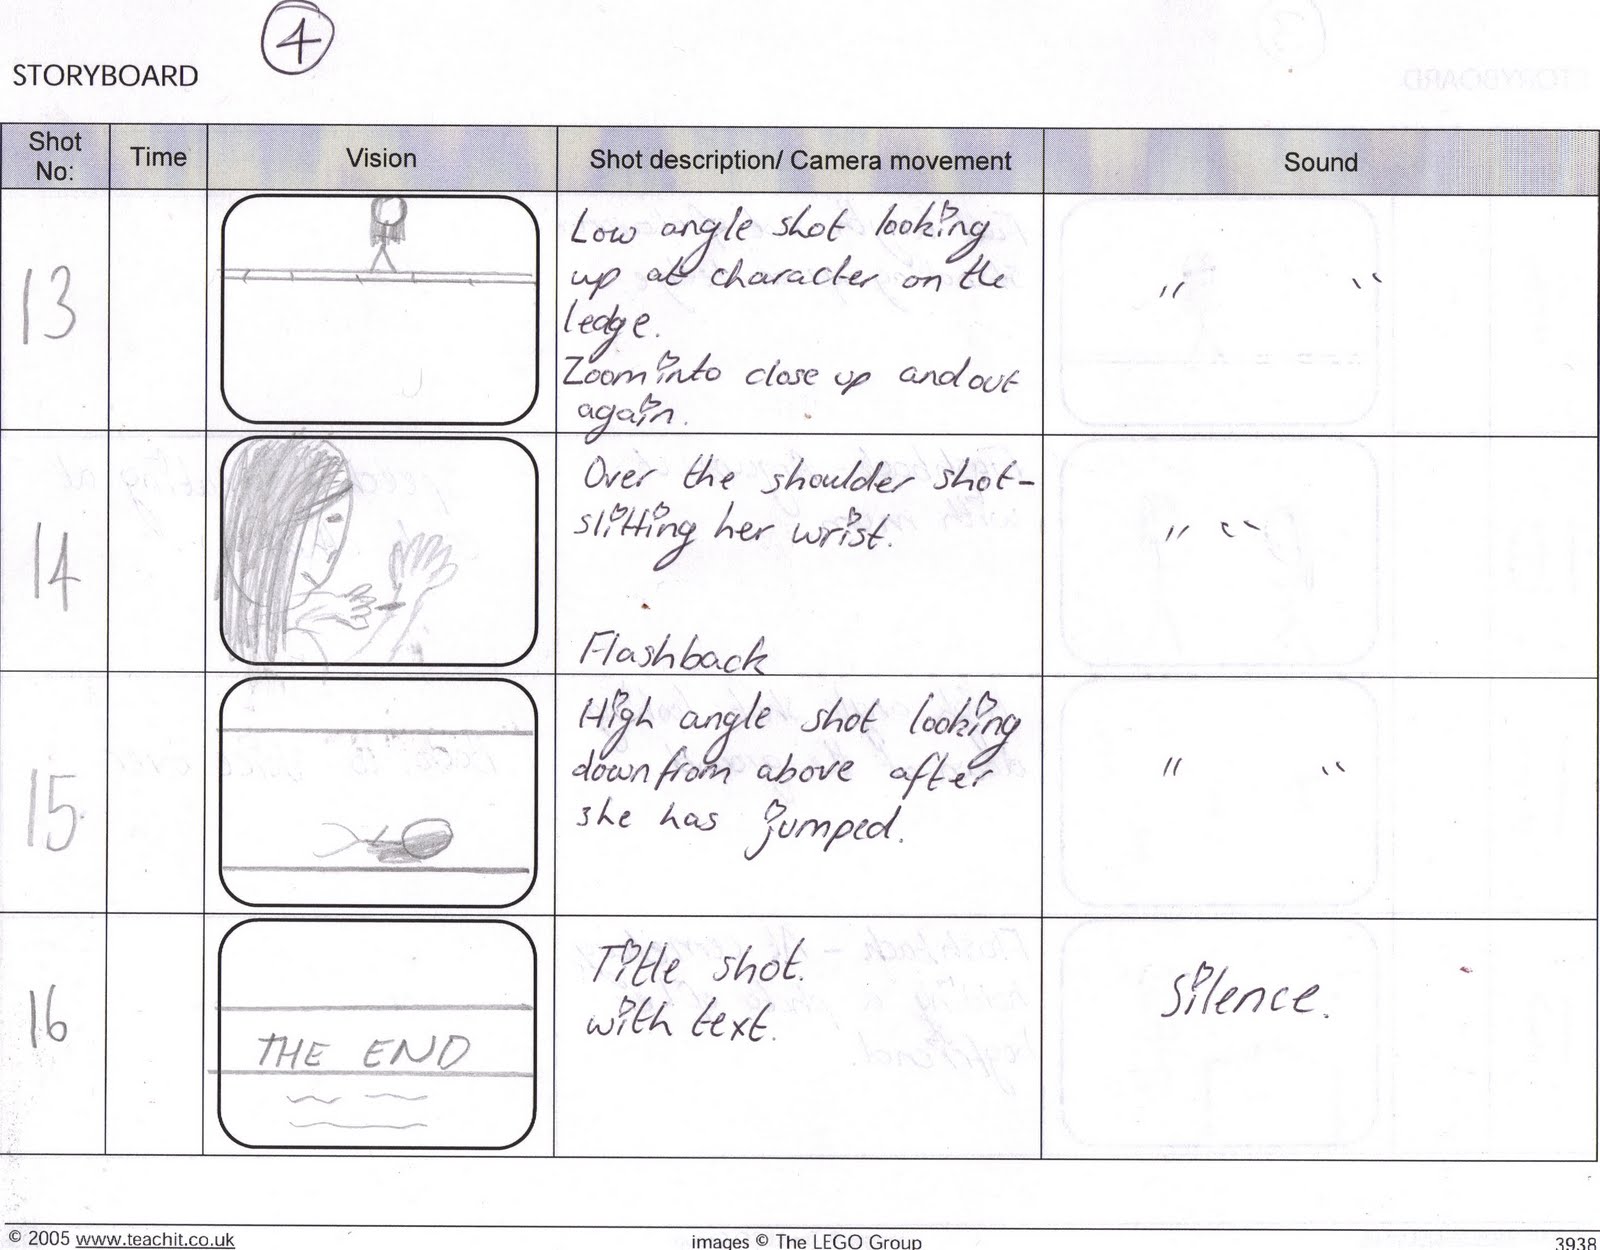 4
STORYBOARD
Shot No:
Time
Vision
Shot description/ Camera movement
Sound
13
Low angle shot looking
up at character on the
ledge.
Zoom into close up and out
again.
" "
14
Over the shoulder shot-
slitting her wrist.
Flashback
" "
15
High angle shot looking
down from above after
she has jumped.
" "
16
THE END
Title shot.
with text.
Silence.
© 2005 www.teachit.co.uk
images © The LEGO Group
3938